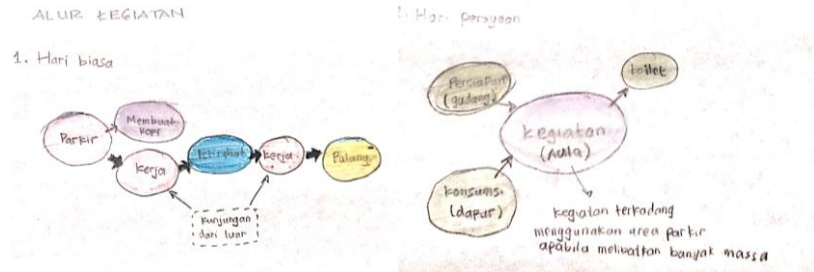 ALUR KEGIATAN
1. Hari biasa
Parkir
Membuat
kopi
Kerja
Istirahat
Kerja
Pulang
Kunjungan
dari luar
Hari perayaan
Persiapan
(gudang)
toilet
kegiatan
(Aula)
konsumsi
(dapur)
kegiatan terkadang
menggunakan area parkir
apabila melibatkan banyak massa